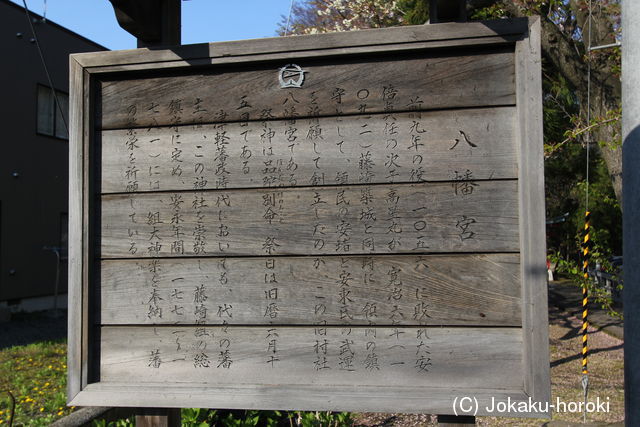 八幡宮
前九年の役(一〇五六)に敗れた安
倍貞任の次子高星丸が、寛治六年(一
〇九二)藤崎築城と同時に、領内の鎮
守として、領民の安堵と安東氏の武運
を祈願して創立したのが、この旧村社
八幡宮である。
祭神は品陀別命、祭日は旧暦六月十
五日である。
津軽藩政時代においても、代々の藩
主は、この神社を崇敬し、藤崎組の総
鎮守に定め、安永年間(一七七二〜一
七八一)には、組大神楽を奉納し、藩
の栄を祈願している
(C) Jokaku-horoki